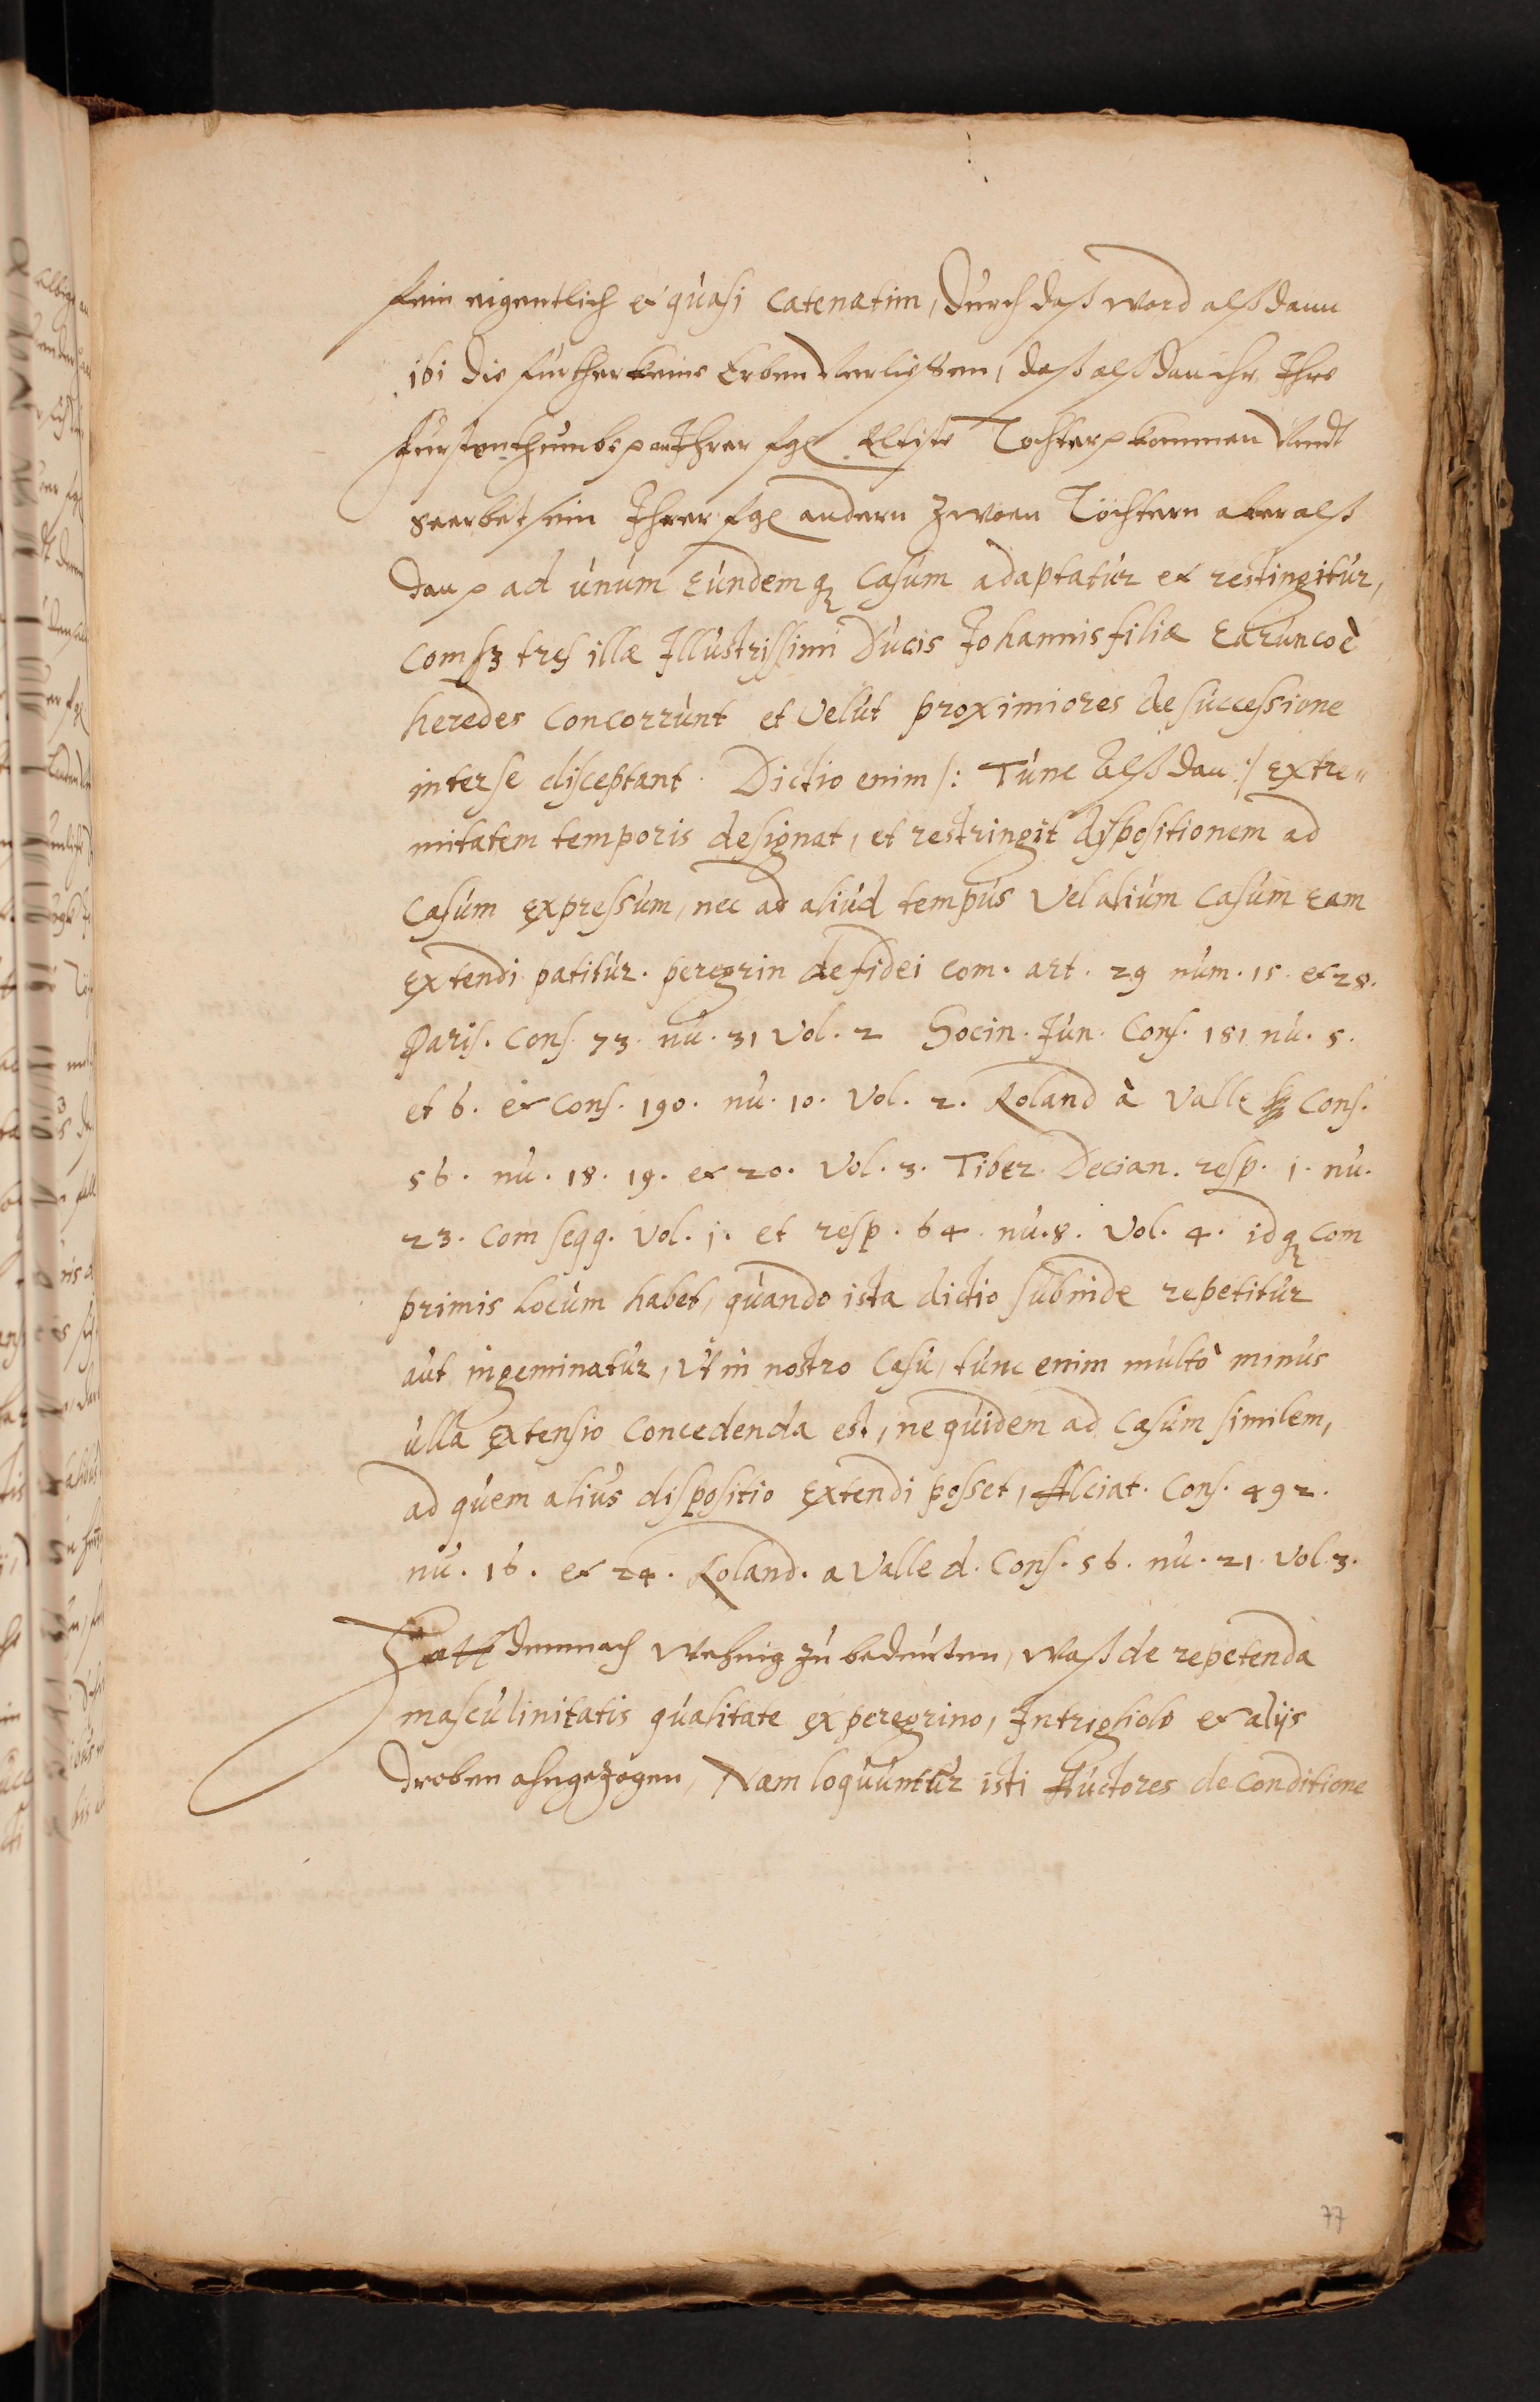 sein eigentlich et quasi catenatim, durch daß word alßdann
ibi die fürther keine Erben verließen, daß alßdan ihr Ihre
Fürstenthumbe p an Ihrer fgl Eltiste Tochter p kommen Vndt
geerbet sein Ihrer fgl andern zwoen Töchtern aber alß
dan p ad unum eundemq casum adaptatur et restingitur,
tres illæ Illustrissimi Ducis Johannis filiæ
heredes concorrunt et velut proximiores de successione
inter se disceptant. Dictio enim /: Tunc Alßdan :/ extre„
mitatem temporis designat, et restringit dispositionem ad
casum expressum, nec ad aliud tempus vel alium casum eam
extendi patitur. peregrin de fidei com. art. 29 num. 15. et 28.
Paris. cons. 73. nu. 31 Vol. 2 Socin. Jun. Cons. 181 nu. 5.
et 6. et cons. 190. nu. 10. Vol. 2. Roland à Valle Cons.
56. nu. 18. 19. et 20. Vol. 3. Tiber. Decian. resp. 1. nu.
23. com seqq. Vol. 1. et resp. 64. nu. 8. Vol. 4. idq com
primis locum habet, quando ista dictio subinde repetitur
aut ingeminatur, Vt in nostro Casu, tunc enim multò minus
ulla extensio concedenda est, ne quidem ad casum similem,
ad quem alius dispositio extendi posset, Alciat. Cons. 492.
nu. 16. et 24. Roland. a Valle d. Cons. 56. nu. 21. Vol. 3.
Hatt demnach wehnig zu bedeuten, waß de repetenda
masculinitatis qualitate ex peregrino, Intrigliolo et alijs
droben ahngezogen, Nam loquuntur isti Auctores de conditione
77